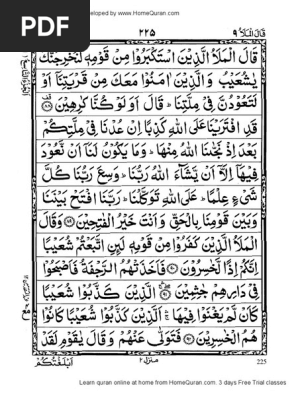 PDF
Developed by www.HomeQuran.com
قال الملا ٩
٢٢٥
قَالَ الْمَلَاُ الَّذِيْنَ اسْتَكْبَرُوْا مِنْ قَوْمِهٖ لَنُخْرِجَنَّكَ
يٰشُعَيْبُ وَالَّذِيْنَ اٰمَنُوْا مَعَكَ مِنْ قَرْيَتِنَاۤ اَوْ
لَتَعُوْدُنَّ فِيْ مِلَّتِنَا ؕ قَالَ اَوَلَوْ كُنَّا كٰرِهِيْنَ ﴿٨٨﴾
قَدِ افْتَرَيْنَا عَلَى اللّٰهِ كَذِبًا اِنْ عُدْنَا فِيْ مِلَّتِكُمْ
بَعْدَ اِذْ نَجّٰىنَا اللّٰهُ مِنْهَا ؕ وَمَا يَكُوْنُ لَنَاۤ اَنْ نَّعُوْدَ
فِيْهَاۤ اِلَّاۤ اَنْ يَّشَآءَ اللّٰهُ رَبُّنَا ؕ وَسِعَ رَبُّنَا كُلَّ
شَيْءٍ عِلْمًا ؕ عَلَى اللّٰهِ تَوَكَّلْنَا ؕ رَبَّنَا افْتَحْ بَيْنَنَا
وَبَيْنَ قَوْمِنَا بِالْحَقِّ وَاَنْتَ خَيْرُ الْفٰتِحِيْنَ ﴿٨٩﴾ وَقَالَ
الْمَلَاُ الَّذِيْنَ كَفَرُوْا مِنْ قَوْمِهٖ لَئِنِ اتَّبَعْتُمْ شُعَيْبًا
اِنَّكُمْ اِذًا لَّخٰسِرُوْنَ ﴿٩٠﴾ فَاَخَذَتْهُمُ الرَّجْفَةُ فَاَصْبَحُوْا
فِيْ دَارِهِمْ جٰثِمِيْنَ ﴿٩١﴾ الَّذِيْنَ كَذَّبُوْا شُعَيْبًا
كَاَنْ لَّمْ يَغْنَوْا فِيْهَا ۛ اَلَّذِيْنَ كَذَّبُوْا شُعَيْبًا كَانُوْا
هُمُ الْخٰسِرِيْنَ ﴿٩٢﴾ فَتَوَلّٰى عَنْهُمْ وَقَالَ يٰقَوْمِ لَقَدْ
اَبْلَغْتُكُمْ
منزل ٢
225
Learn quran online at home from HomeQuran.com. 3 days Free Trial classes